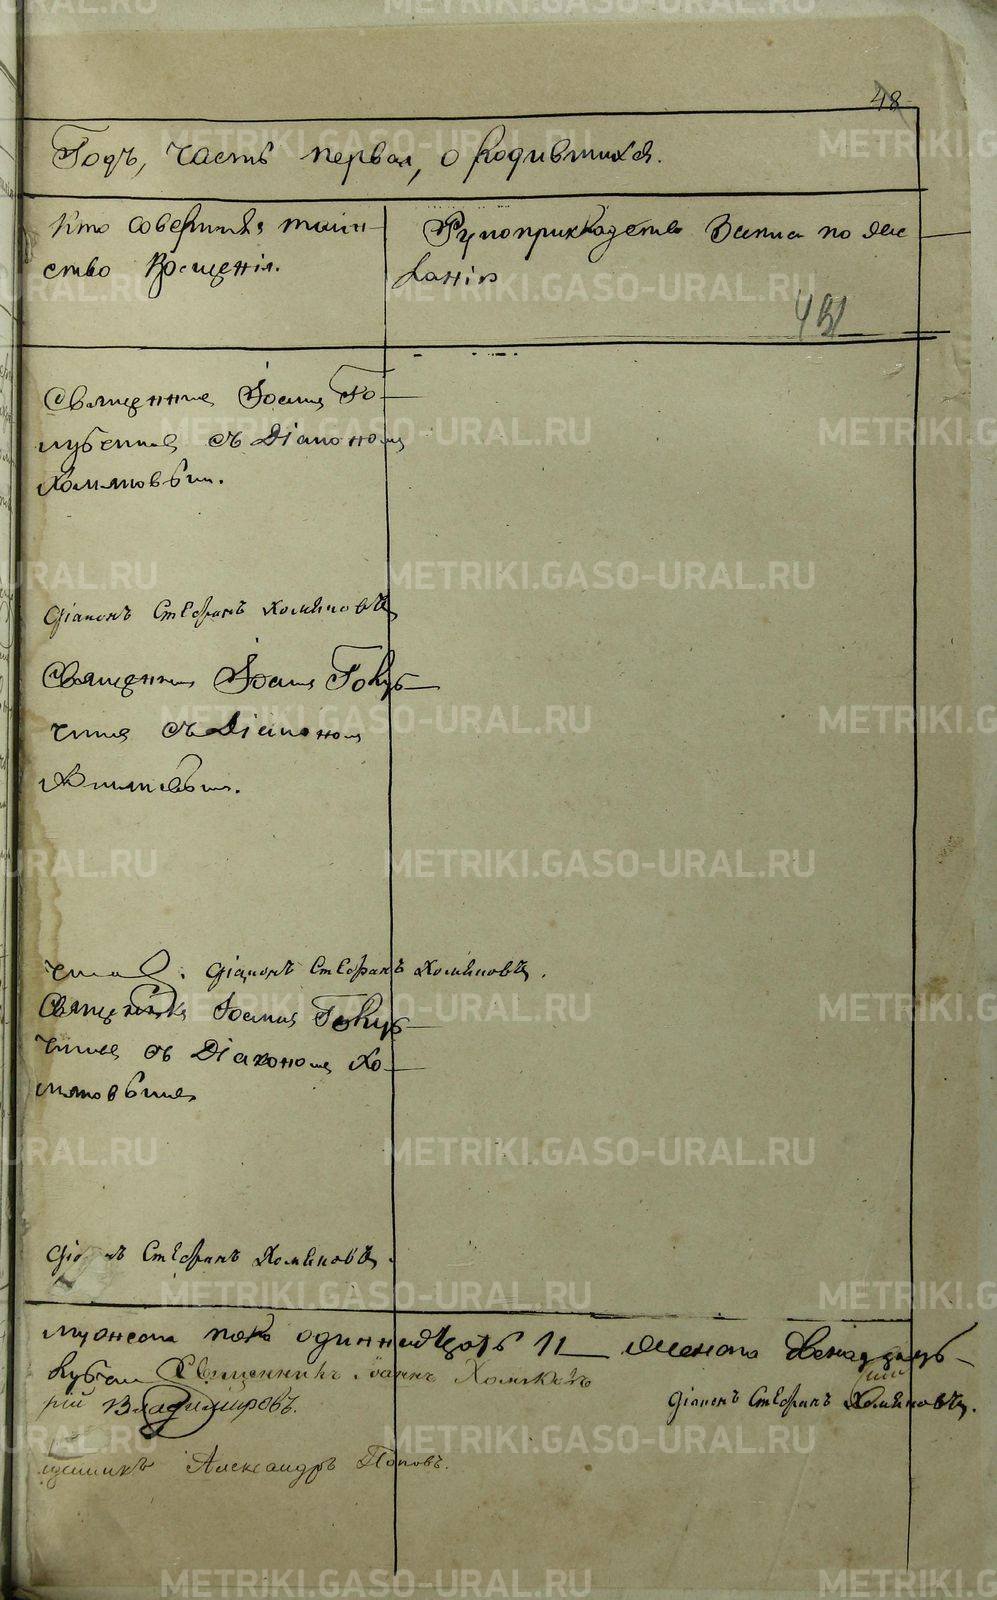 48
Годъ, часть первая, о родившихся.
Кто совершилъ таин-
ство крещенія.
Рукоприкладство записи по же-
ланію
Священникъ Іоаннъ Го-
съ Діакономъ
Хомяковымъ.
Діаконъ Стефанъ Хомяковъ
Священникъ Іоаннъ Голуб-
съ Діакономъ
Хомяковымъ.
Діаконъ Стефанъ Хомяковъ.
Священникъ Іоаннъ Голуб-
съ Діакономъ Хо-
мяковымъ
Діаконъ Стефанъ Хомяковъ.
мужска пола одиннадцать 11 женска двенадцать
Священникъ Іоаннъ
рій Владиміровъ.
Діаконъ Стефанъ Хомяковъ.
Александръ Поповъ.
METRIKI.GASO-URAL.RU